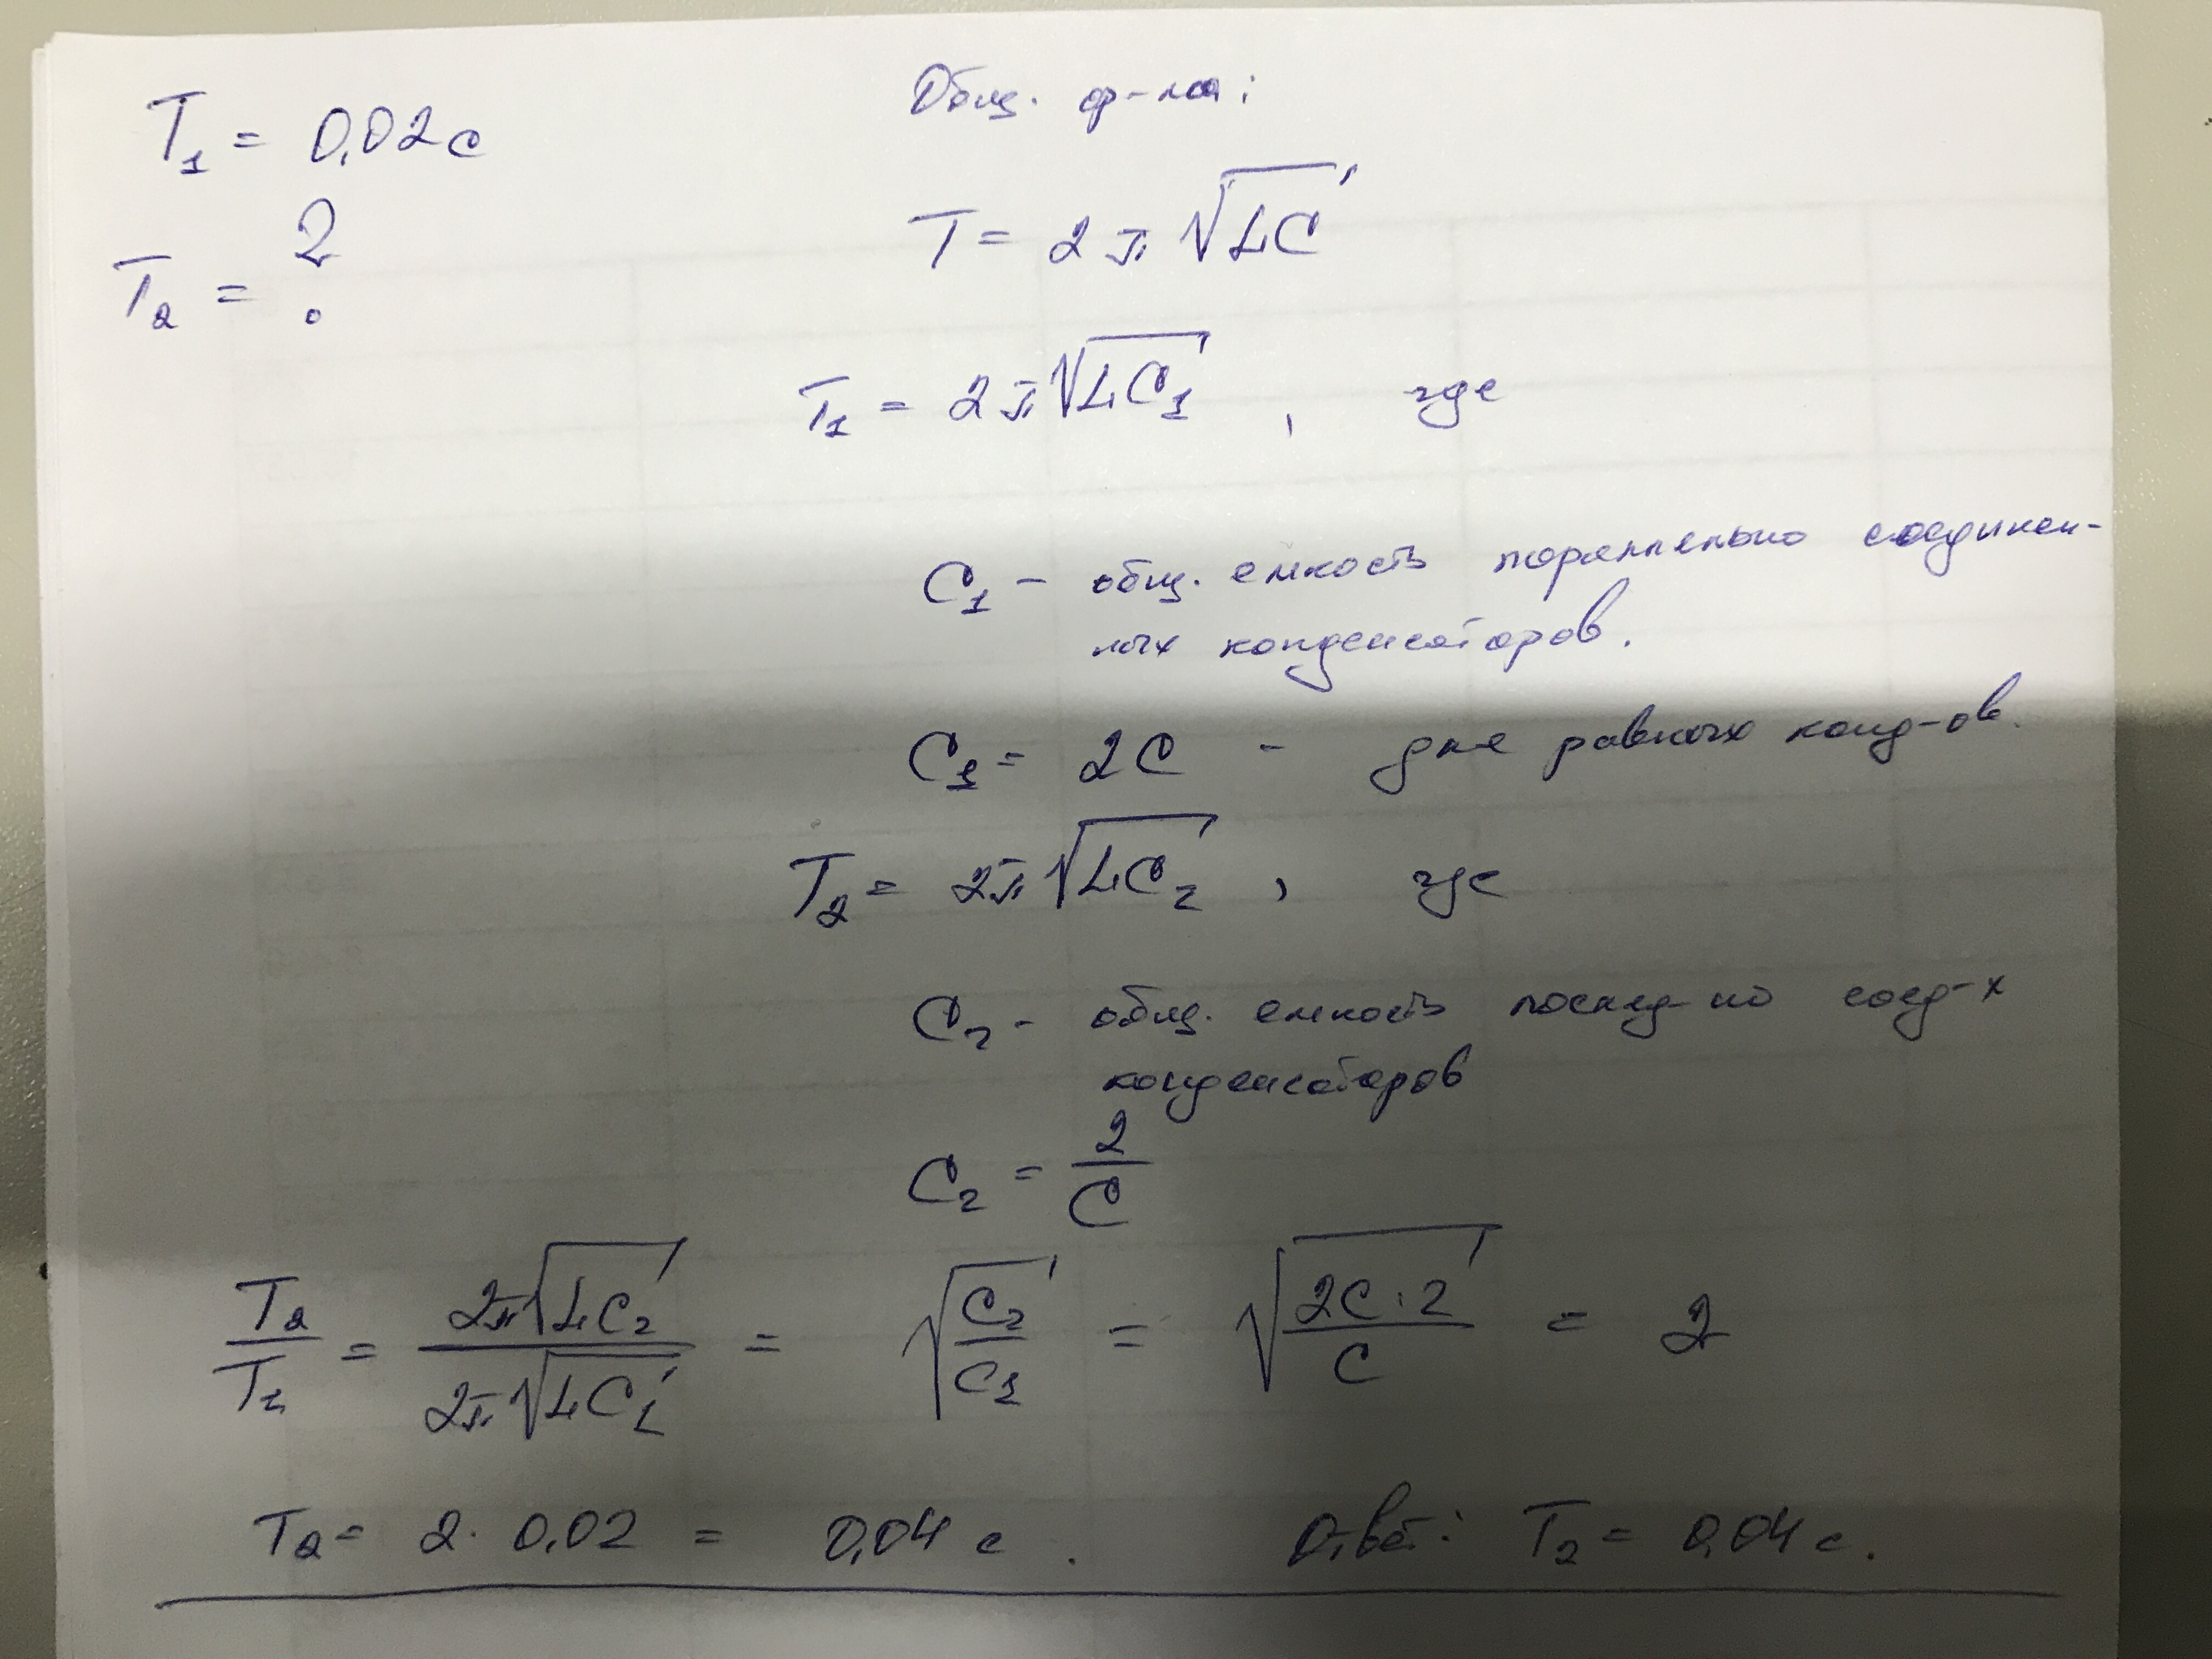 T₁ = 0,02 с
T₂ = ?
Общ. ф-ла:
T = 2π√LC
T₁ = 2π√LC₁ , где
C₁ – общ. емкость пораллельно соединен-
ных конденсаторов.
C₁ = 2C – для равных конд-ов.
T₂ = 2π√LC₂ , где
C₂ – общ. емкость послед-но соед-х
конденсаторов
C₂ = 2/C
T₂/T₁ = 2π√LC₂ / 2π√LC₁ = √(C₂/C₁) = √(2C·2/C) = 2
T₂ = 2 · 0,02 = 0,04 с . Ответ: T₂ = 0,04 с.